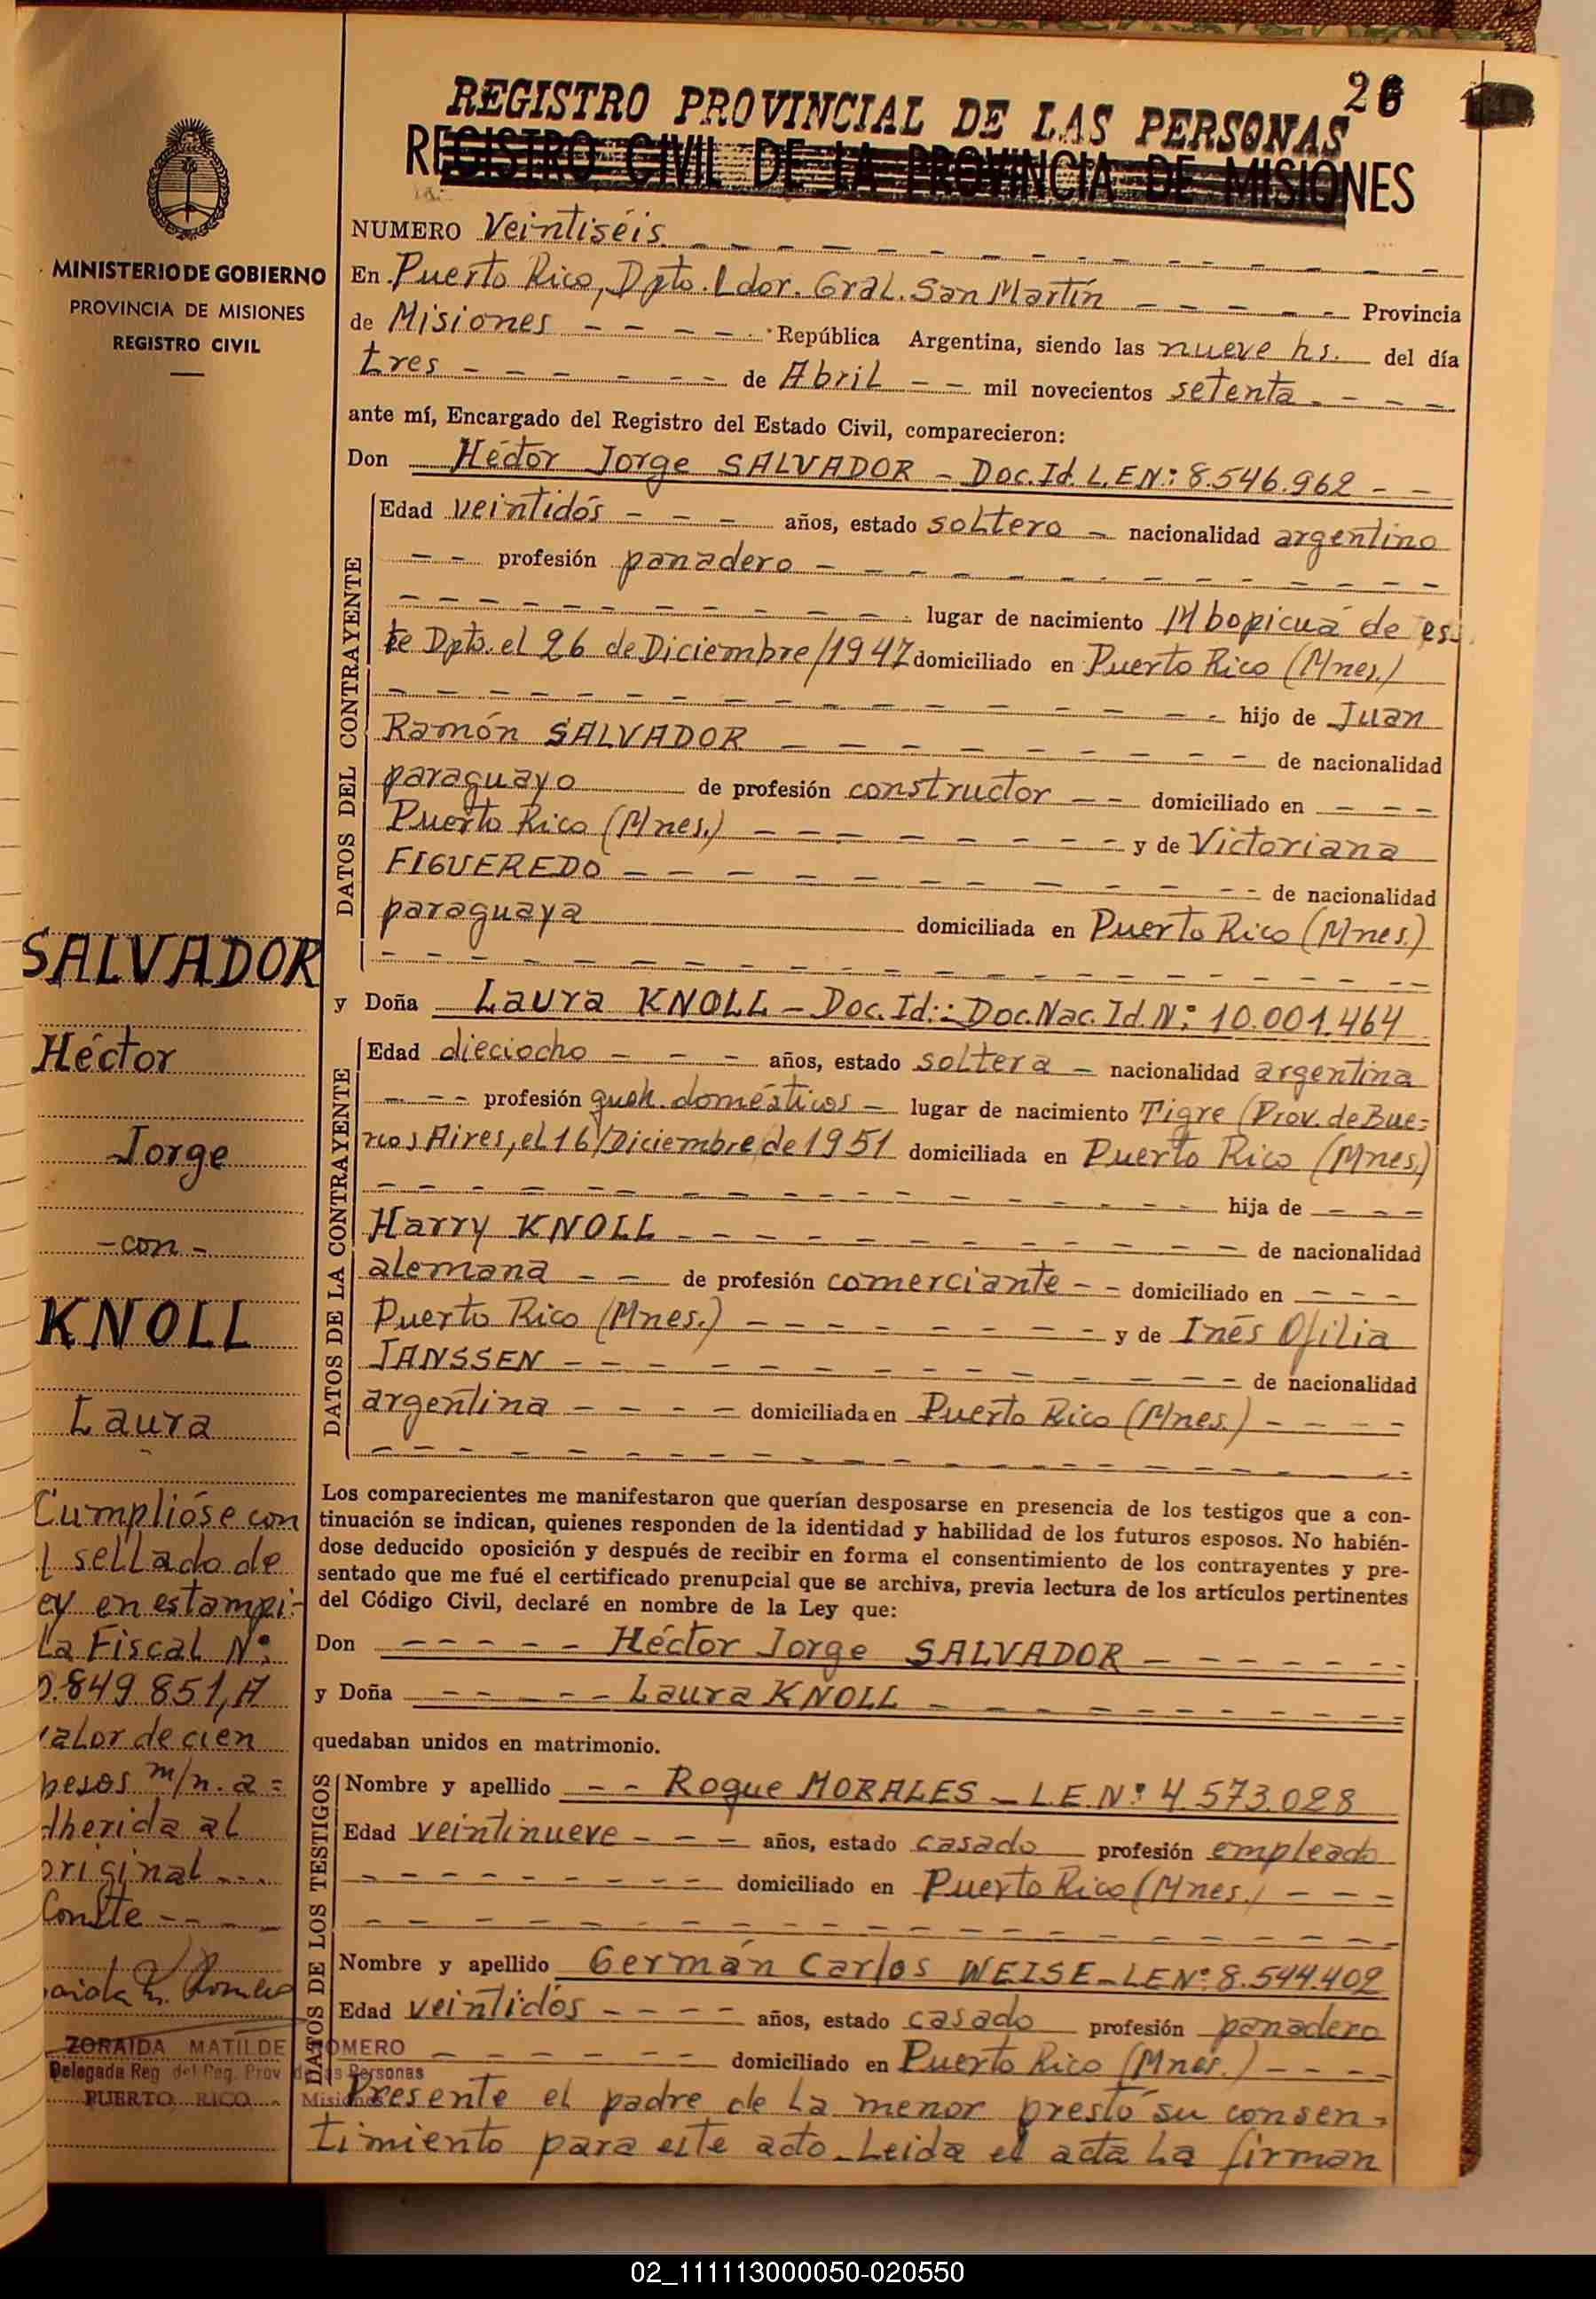 26
REGISTRO PROVINCIAL DE LAS PERSONAS
REGISTRO CIVIL DE LA PROVINCIA DE MISIONES
MINISTERIO DE GOBIERNO
PROVINCIA DE MISIONES
REGISTRO CIVIL
NUMERO Veintiséis
En Puerto Rico, Dpto. Ldor. Gral. San Martín Provincia
de Misiones República Argentina, siendo las nueve hs. del día
tres de Abril mil novecientos setenta
ante mí, Encargado del Registro del Estado Civil, comparecieron:
Don Héctor Jorge SALVADOR - Doc. Id. L.EN: 8.546.962
DATOS DEL CONTRAYENTE
Edad veintidós años, estado soltero nacionalidad argentino
profesión panadero
lugar de nacimiento Mbopicuá de es-
te Dpto. el 26 de Diciembre/1947 domiciliado en Puerto Rico (Mnes.)
hijo de Juan
Ramón SALVADOR de nacionalidad
paraguayo de profesión constructor domiciliado en
Puerto Rico (Mnes.) y de Victoriana
FIGUEREDO de nacionalidad
paraguaya domiciliada en Puerto Rico (Mnes.)
y Doña Laura KNOLL - Doc. Id.: Doc. Nac. Id. Nº: 10.001.464
DATOS DE LA CONTRAYENTE
Edad dieciocho años, estado soltera nacionalidad argentina
profesión queh. domésticos lugar de nacimiento Tigre (Prov. de Bue=
nos Aires, el 16/Diciembre de 1951 domiciliada en Puerto Rico (Mnes.)
hija de
Harry KNOLL de nacionalidad
alemana de profesión comerciante domiciliado en
Puerto Rico (Mnes.) y de Inés Ofilia
JANSSEN de nacionalidad
argentina domiciliada en Puerto Rico (Mnes.)
Los comparecientes me manifestaron que querían desposarse en presencia de los testigos que a con-
tinuación se indican, quienes responden de la identidad y habilidad de los futuros esposos. No habién-
dose deducido oposición y después de recibir en forma el consentimiento de los contrayentes y pre-
sentado que me fué el certificado prenupcial que se archiva, previa lectura de los artículos pertinentes
del Código Civil, declaré en nombre de la Ley que:
Don Héctor Jorge SALVADOR
y Doña Laura KNOLL
quedaban unidos en matrimonio.
DATOS DE LOS TESTIGOS
Nombre y apellido Roque MORALES - L.E.Nº: 4.573.028
Edad veintinueve años, estado casado profesión empleado
domiciliado en Puerto Rico (Mnes.)
Nombre y apellido Germán Carlos WEISE - L.E.Nº: 8.544.402
Edad veintidós años, estado casado profesión panadero
domiciliado en Puerto Rico (Mnes.)
Presente el padre de la menor prestó su consen-
timiento para este acto. Leida el acta la firman
SALVADOR
Héctor
Jorge
-con-
KNOLL
Laura
Cumplióse con
l sellado de
ey en estampi-
la Fiscal Nº
0.849.851, A
valor de cien
pesos m/n. a=
dherida al
original
Conste
ZORAIDA MATILDE ROMERO
Delegada Reg. del Reg. Prov. de las Personas
PUERTO RICO Misiones
02_111113000050-020550